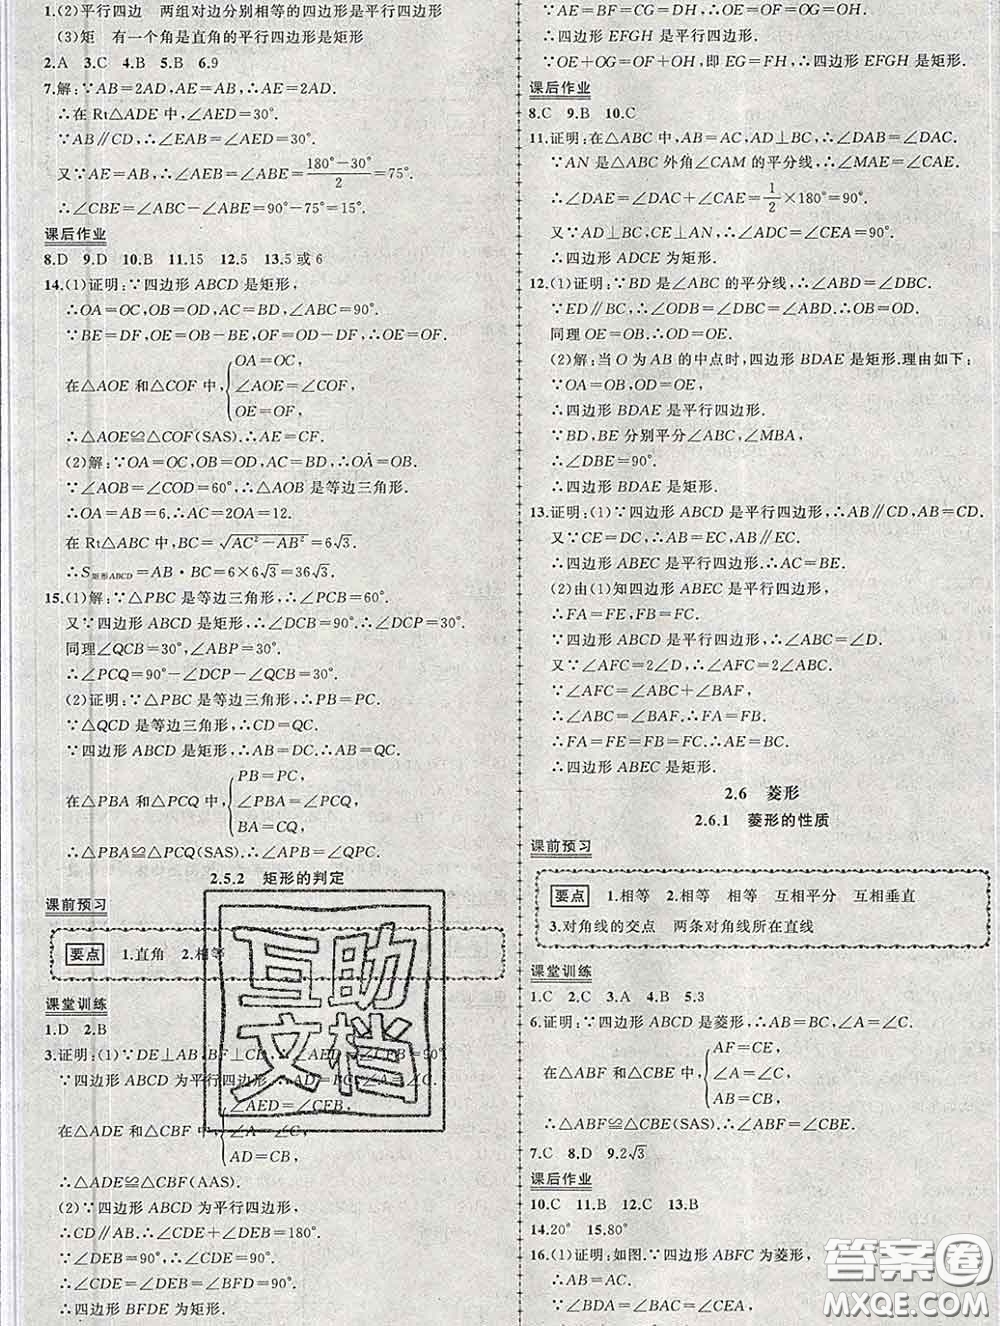 1.(2)平行四边　两组对边分别相等的四边形是平行四边形
(3)矩　有一个角是直角的平行四边形是矩形
2.A　3.C　4.B　5.B　6.9
7.解:∵AB=2AD,AE=AB,∴AE=2AD.
∴在Rt△ADE中,∠AED=30°.
∵AB∥CD,∴∠EAB=∠AED=30°.
又∵AE=AB,∴∠AEB=∠ABE=(180°-30°)/2=75°.
∴∠CBE=∠ABC-∠ABE=90°-75°=15°.
课后作业
8.D　9.D　10.B　11.15　12.5　13.5或6
14.(1)证明:∵四边形ABCD是矩形,
∴OA=OC,OB=OD,AC=BD,∠ABC=90°.
∵BE=DF,OE=OB-BE,OF=OD-DF,∴OE=OF.
在△AOE和△COF中,{OA=OC,
∠AOE=∠COF,
OE=OF,
∴△AOE≌△COF(SAS).∴AE=CF.
(2)解:∵OA=OC,OB=OD,AC=BD,∴OA=OB.
∵∠AOB=∠COD=60°,∴△AOB是等边三角形.
∴OA=AB=6.∴AC=2OA=12.
在Rt△ABC中,BC=√(AC²-AB²)=6√3.
∴S矩形ABCD=AB·BC=6×6√3=36√3.
15.(1)解:∵△PBC是等边三角形,∴∠PCB=60°.
又∵四边形ABCD是矩形,∴∠DCB=90°.∴∠DCP=30°.
同理∠QCB=30°,∠ABP=30°.
∴∠PCQ=90°-∠DCP-∠QCB=30°.
(2)证明:∵△PBC是等边三角形,∴PB=PC.
∵△QCD是等边三角形,∴CD=QC.
∵四边形ABCD是矩形,∴AB=DC.∴AB=QC.
在△PBA和△PCQ中,{PB=PC,
∠PBA=∠PCQ,
BA=CQ,
∴△PBA≌△PCQ(SAS).∴∠APB=∠QPC.
2.5.2　矩形的判定
课前预习
要点　1.直角　2.相等
课堂训练
1.D　2.B
3.证明:(1)∵DE⊥AB,BF⊥CD,∴∠AED=∠CFB=90°.
∵四边形ABCD为平行四边形,∴
在△ADE和△CBF中,{∠AED=∠CFB,
∠A=∠C,
AD=CB,
∴△ADE≌△CBF(AAS).
(2)∵四边形ABCD为平行四边形,
∴CD∥AB.∴∠CDE+∠DEB=180°.
∵∠DEB=90°,∴∠CDE=90°.
∴∠CDE=∠DEB=∠BFD=90°.
∴四边形BFDE为矩形.
∵AE=BF=CG=DH,∴OE=OF=OG=OH.
∴四边形EFGH是平行四边形.
∵OE+OG=OF+OH,即EG=FH,∴四边形EFGH是矩形.
课后作业
8.C　9.B　10.C
11.证明:在△ABC中,AB=AC,AD⊥BC,∴∠DAB=∠DAC.
∵AN是△ABC外角∠CAM的平分线,∴∠MAE=∠CAE.
∴∠DAE=∠DAC+∠CAE=1/2×180°=90°.
又∵AD⊥BC,CE⊥AN,∴∠ADC=∠CEA=90°.
∴四边形ADCE为矩形.
12.(1)证明:∵BD是∠ABC的平分线,∴∠ABD=∠DBC.
∵ED∥BC,∴∠ODB=∠DBC=∠ABD.∴OB=OD.
同理OE=OB.∴OD=OE.
(2)解:当O为AB的中点时,四边形BDAE是矩形.理由如下:
∵OA=OB,OD=OE,
∴四边形BDAE是平行四边形.
∵BD,BE分别平分∠ABC,∠MBA,
∴∠DBE=90°.
∴四边形BDAE是矩形.
13.证明:(1)∵四边形ABCD是平行四边形,∴AB∥CD,AB=CD.
又∵CE=DC,∴AB=EC,AB∥EC.
∴四边形ABEC是平行四边形.∴AC=BE.
(2)由(1)知四边形ABEC是平行四边形,
∴FA=FE,FB=FC.
∵四边形ABCD是平行四边形,∴∠ABC=∠D.
又∵∠AFC=2∠D,∴∠AFC=2∠ABC.
∵∠AFC=∠ABC+∠BAF,
∴∠ABC=∠BAF.∴FA=FB.
∴FA=FE=FB=FC.∴AE=BC.
∴四边形ABEC是矩形.
2.6　菱形
2.6.1　菱形的性质
课前预习
要点　1.相等　2.相等　相等　互相平分　互相垂直
3.对角线的交点　两条对角线所在直线
课堂训练
1.C　2.C　3.A　4.B　5.3
6.证明:∵四边形ABCD是菱形,∴AB=BC,∠A=∠C.
在△ABF和△CBE中,{AF=CE,
∠A=∠C,
AB=CB,
∴△ABF≌△CBE(SAS).∴∠ABF=∠CBE.
7.C　8.D　9.2√3
课后作业
10.C　11.B　12.C　13.B
14.20°　15.80°
16.(1)证明:如图.∵四边形ABFC为菱形,
∴AB=AC.
∴∠BDA=∠BAC=∠CEA,
互助文档
答案圈
MXQE.COM